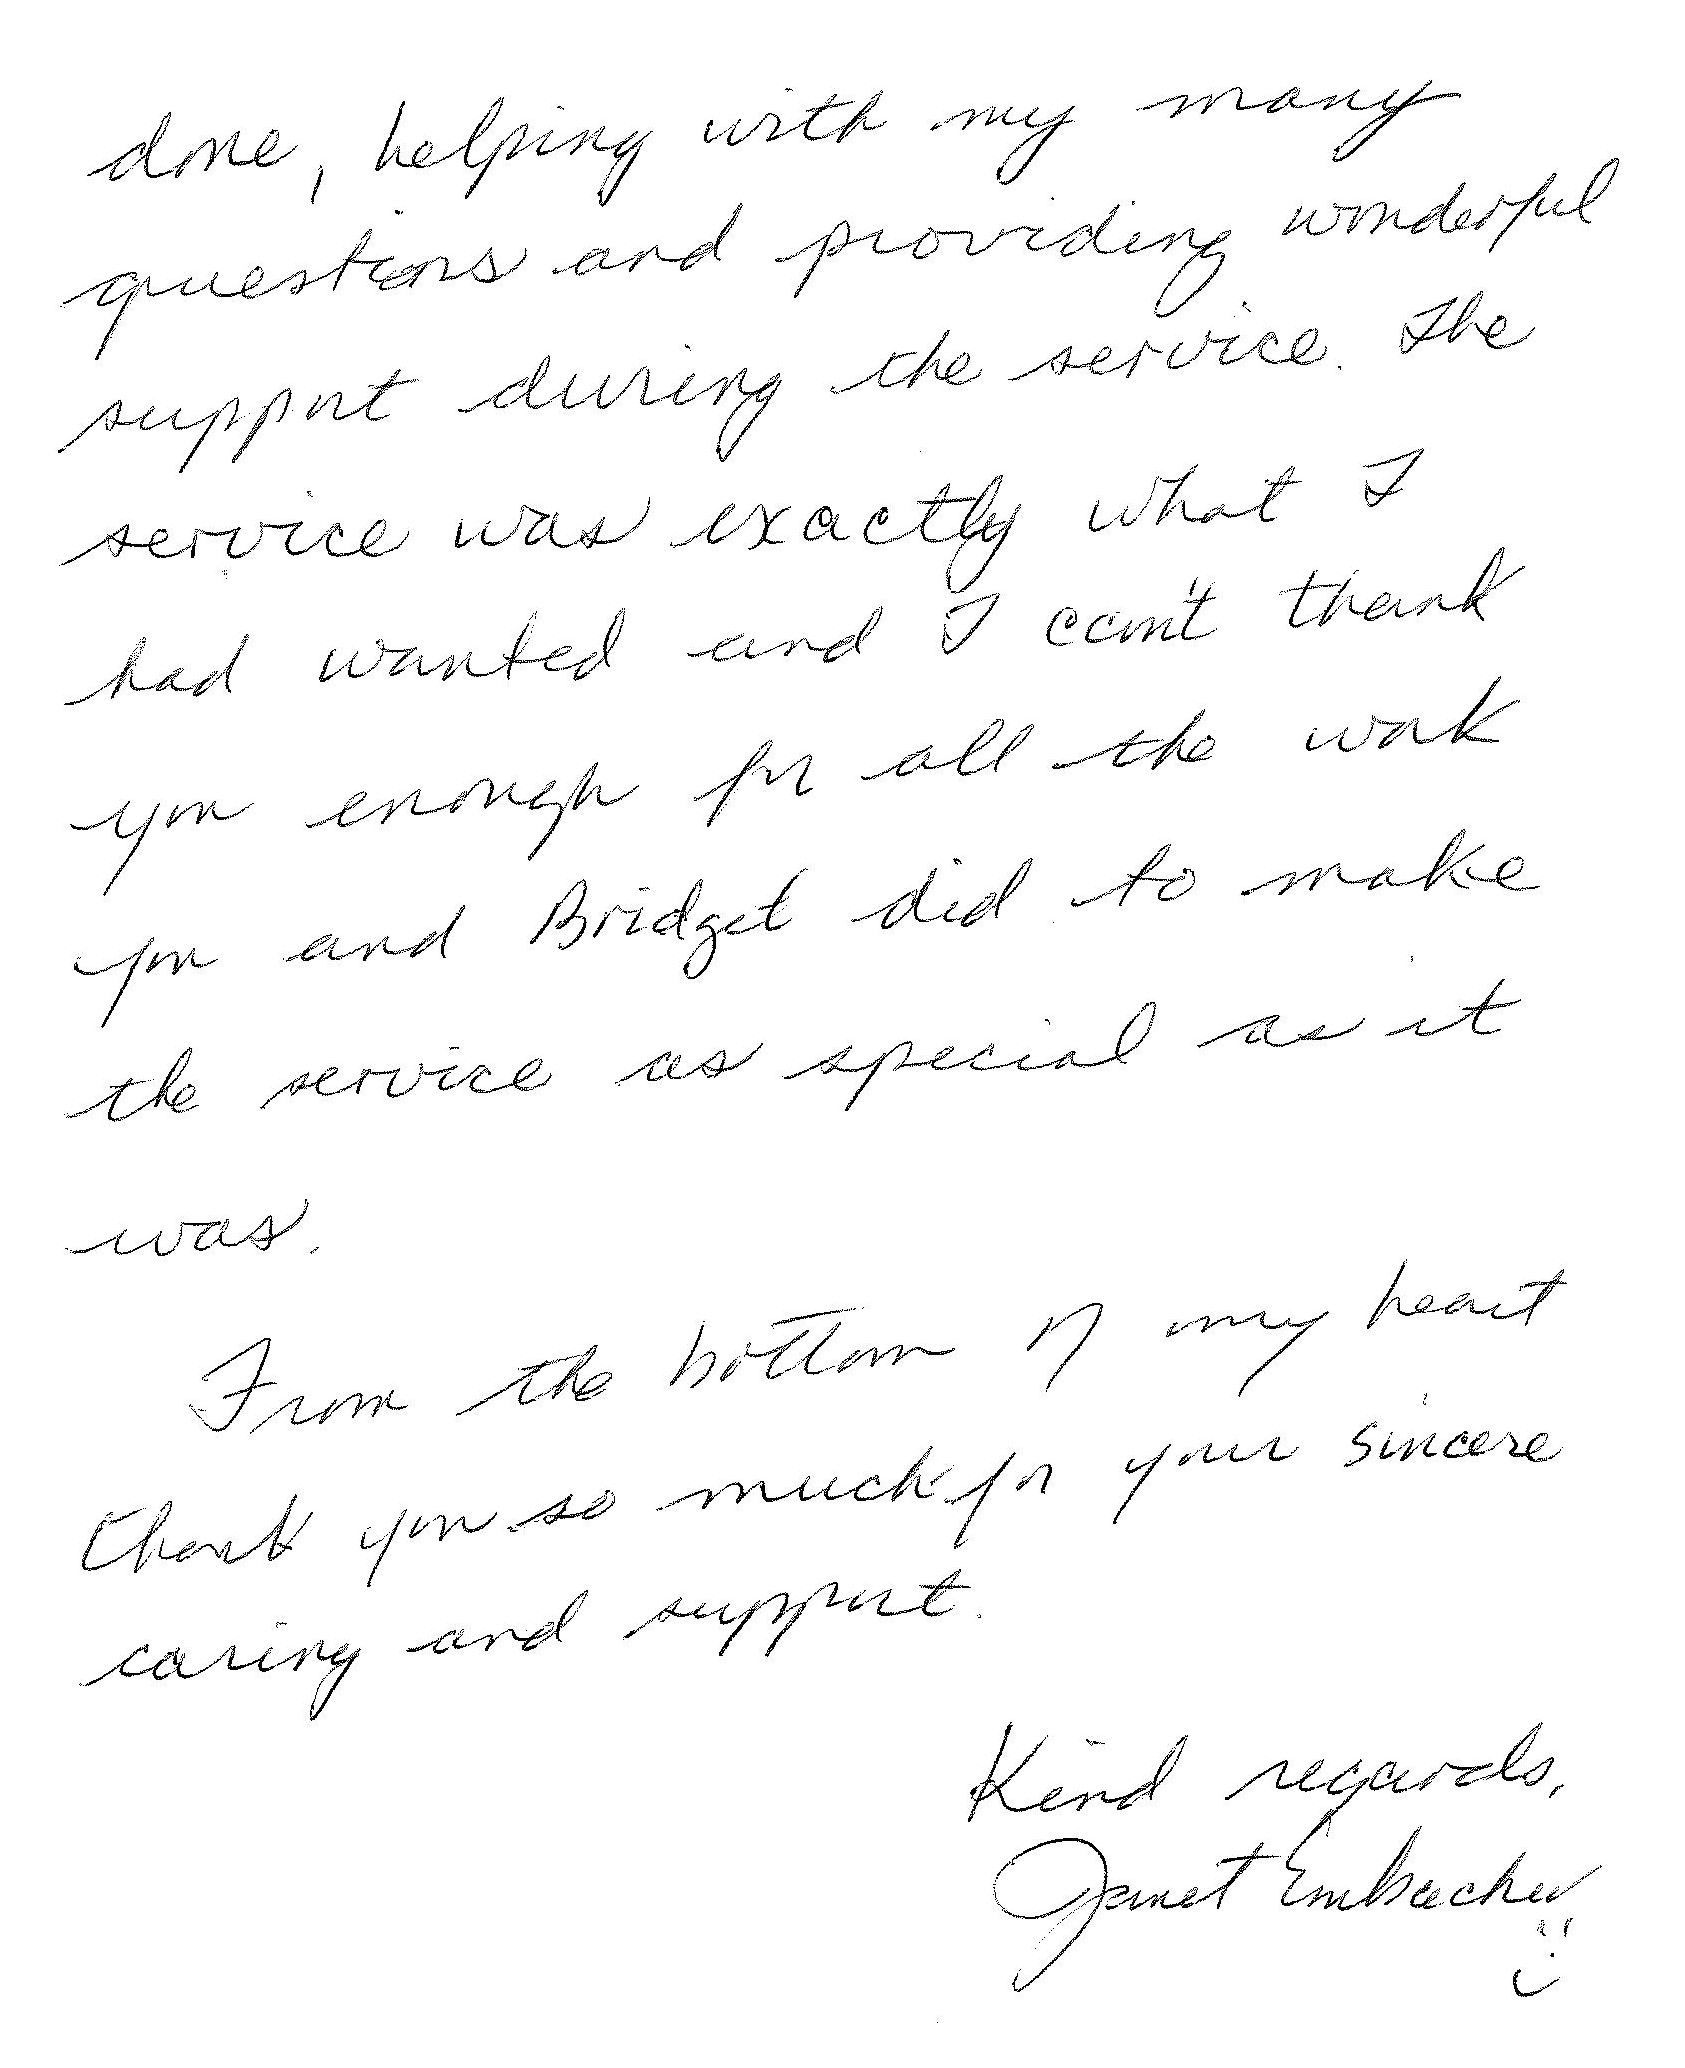 done, helping with my many
questions and providing wonderful
support during the service. The
service was exactly what I
had wanted and I can't thank
you enough for all the work
you and Bridget did to make
the service as special as it
was.
From the bottom of my heart
thank you so much for your sincere
caring and support.
Kind regards,
Janet Embacher